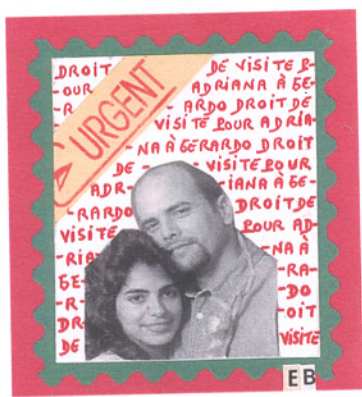 DROIT DE VISITE P-
-OUR ADRIANA À GE-
-R ARDO DROIT DE
URGENT
VISITE POUR ADRIA-
-NA À GERARDO DROIT
DE - - VISITE POUR
ADR- -IANA À GE-
-RARDO DROIT DE
VISITE POUR AD-
-RIA -NA À
GE- -RA-
-R- -DO
DR -OIT
DE VISITE
EB